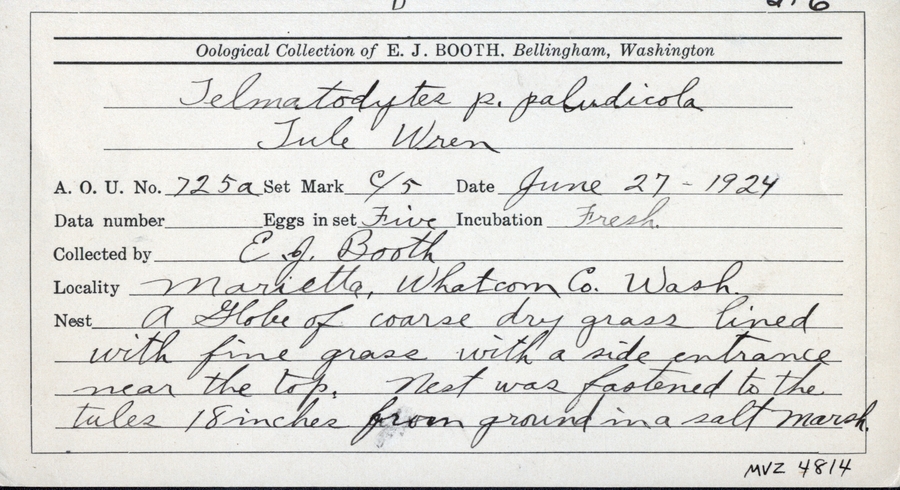 Oological Collection of E. J. BOOTH. Bellingham, Washington
Telmatodytes p. paludicola
Tule Wren
A. O. U. No. 725a Set Mark c/5 Date June 27 - 1924
Data number Eggs in set Five Incubation Fresh.
Collected by E. J. Booth
Locality Marietta, Whatcom Co. Wash.
Nest A Globe of coarse dry grass lined
with fine grass with a side entrance
near the top. Nest was fastened to the
tules 18 inches from ground in a salt marsh.
MVZ 4814